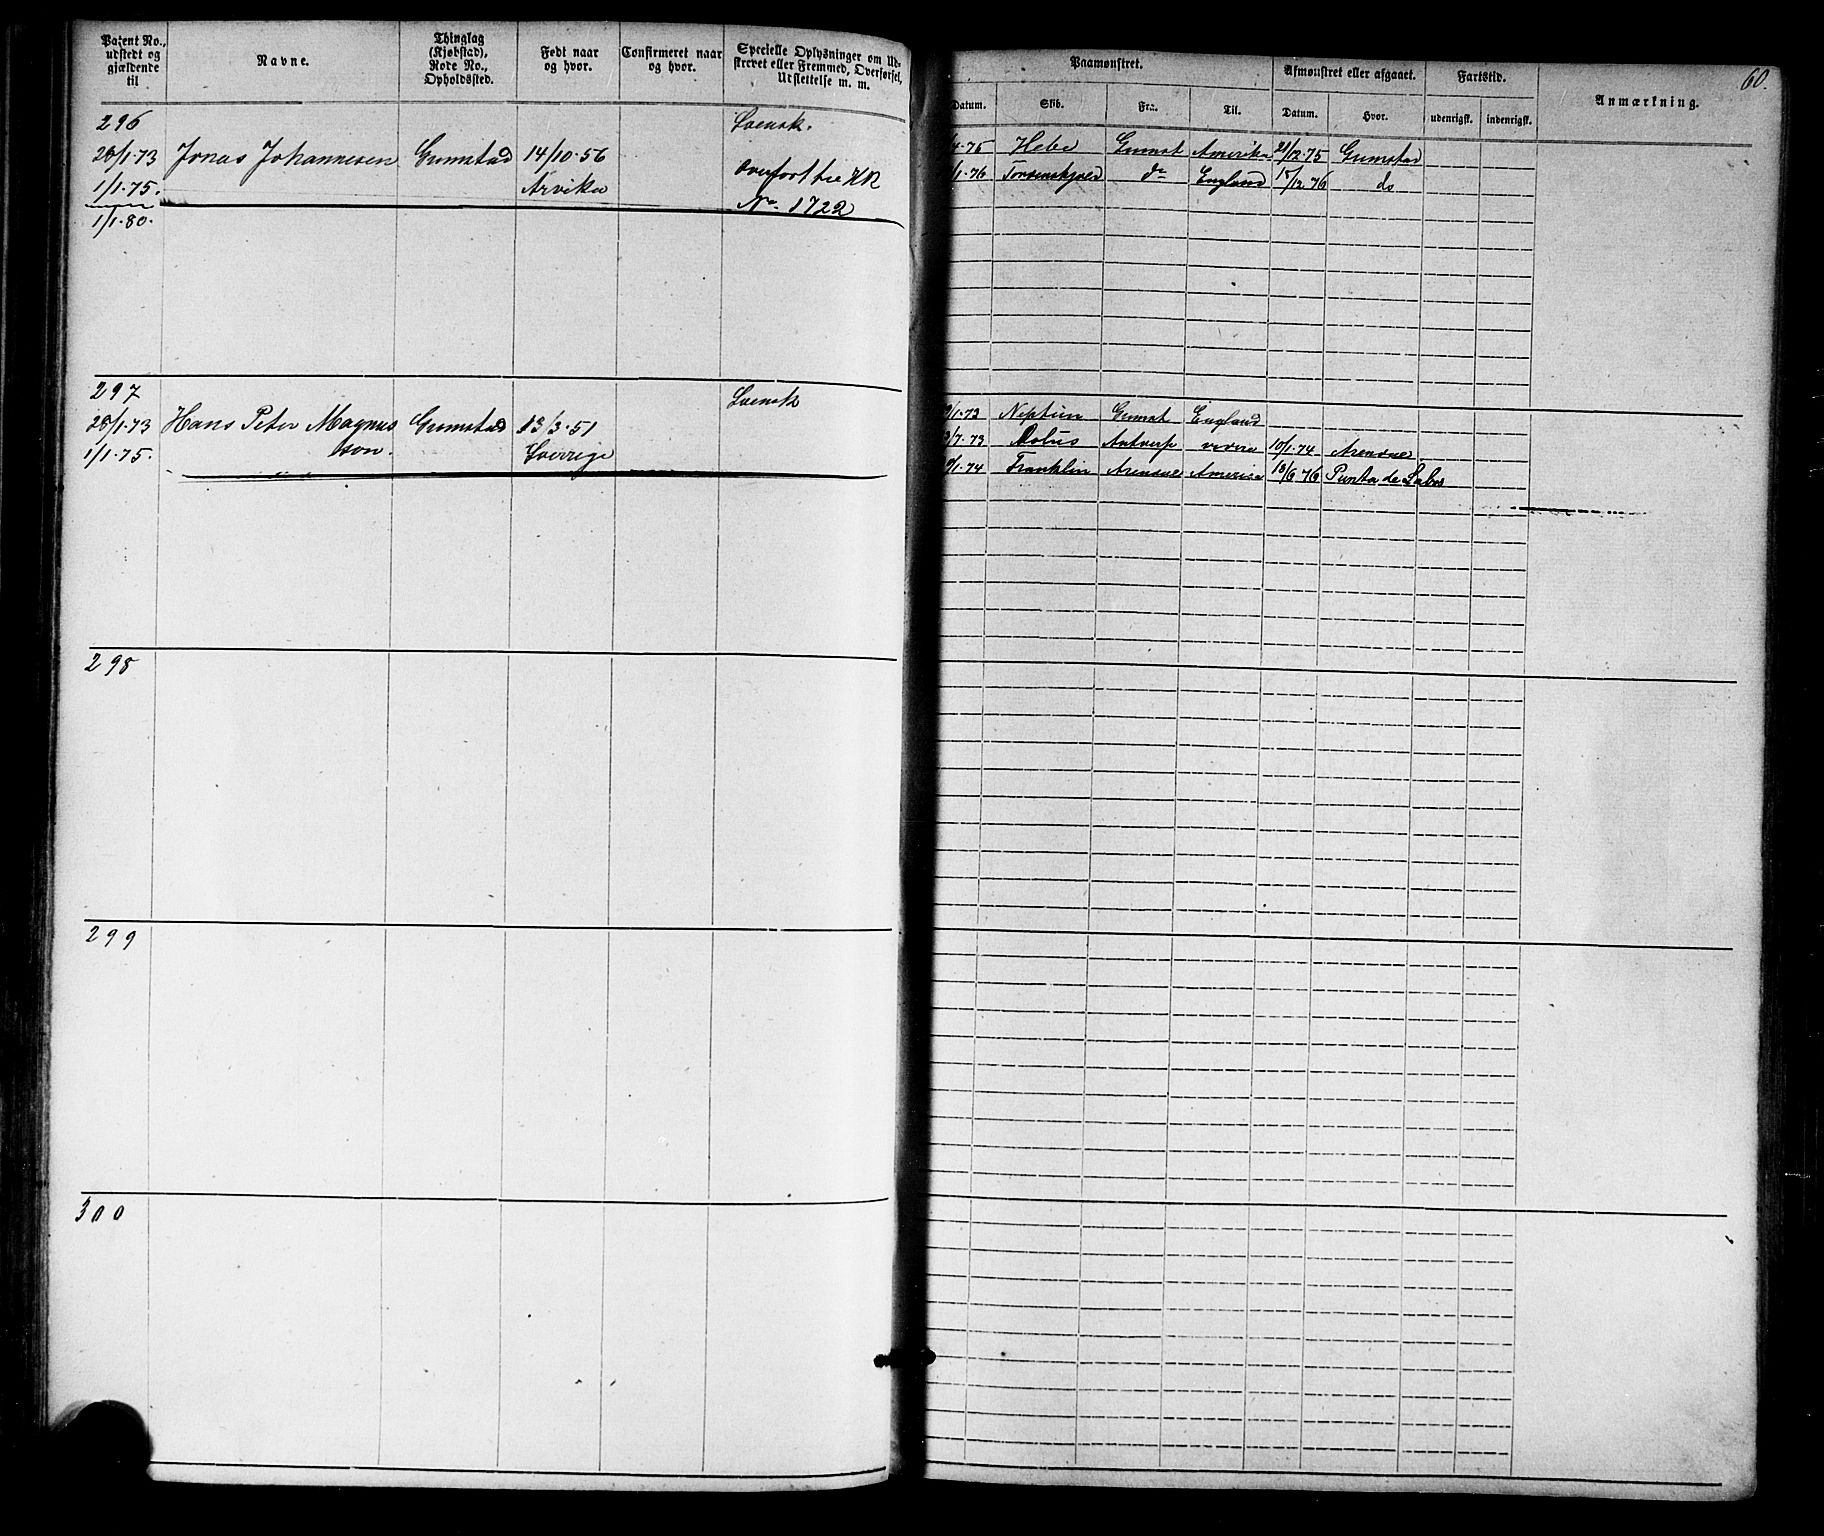 Patent No., udstedt og gjældende til
Navne.
Thinglag (Kjøbstad), Rode No., Opholdssted.
Født naar og hvor.
Confirmeret naar og hvor.
Specielle Oplysninger om Udskrevet eller Fremmed, Overførsel, Udslettelse m. m.
Paamønstret.
Datum.
Skib.
Fra.
Til.
Afmønstret eller afgaaet.
Datum.
Hvor.
Fartstid.
udenrigsk.
indenrigsk.
Anmærkning.
60.
296
28/1.73 Jonas Johannesen Grimstad 14/10.56 Svensk.
1/1.75. Arvika Overført til HR
1/1.80. No. 1722
4.75 Hebe Grimst Amerika 21/12.75 Grimstad
1.76 Tordenskjold do England 15/12 76 do
297
28/1.73 Hans Peter Magnus Grimstad 13/3.51 Svensk
1/1.75. son. Sverrige
1.73 Neptun Grimst England
7.73 Æolus Antverp 10/1.74 Arendal
1.74 Franklin Arendal America 18/6 76 Punta de
298
299
300